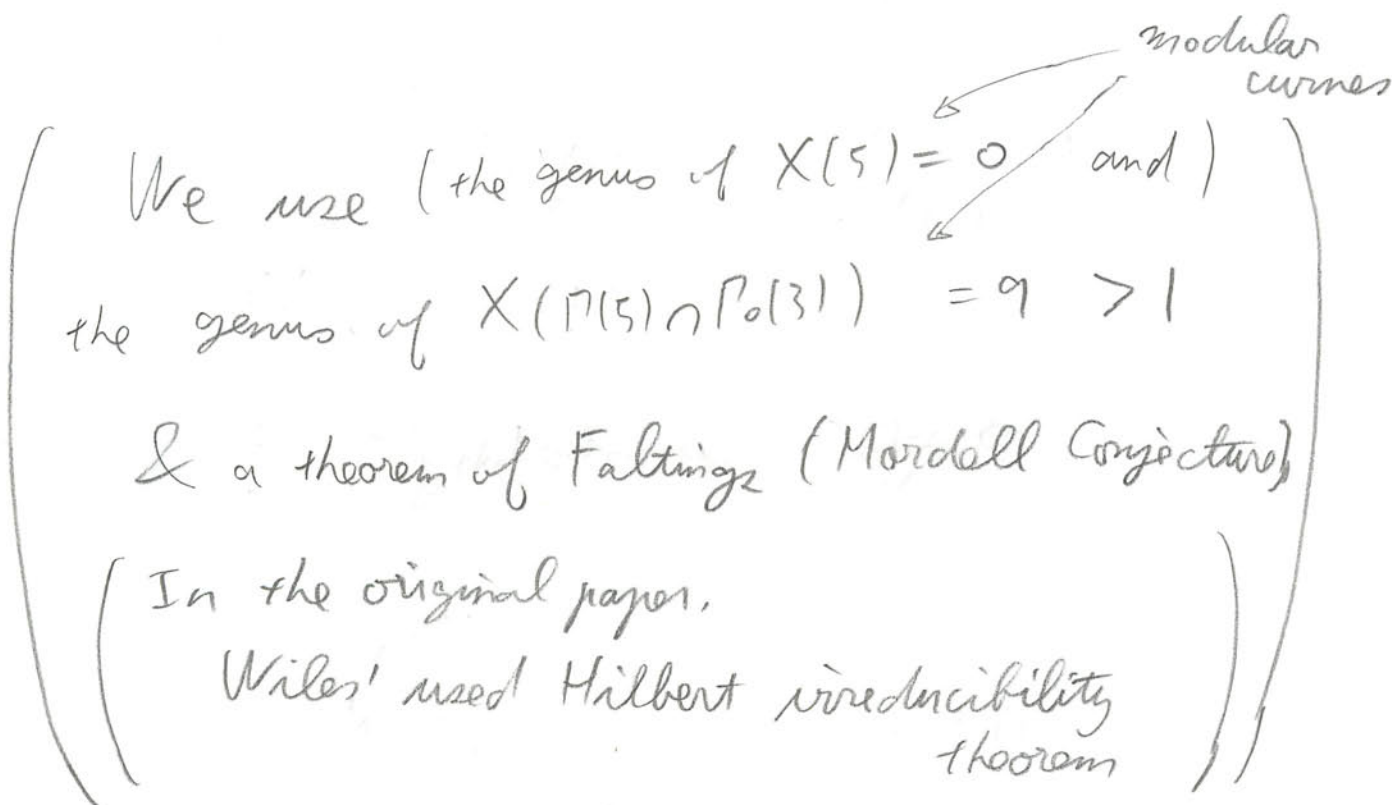 modular
curves
We use (the genus of X(5) = 0 and)
the genus of X(Γ(5)∩Γ₀(3)) = 9 > 1
& a theorem of Faltings (Mordell Conjecture)
(In the original paper,
Wiles' used Hilbert irreducibility
theorem)